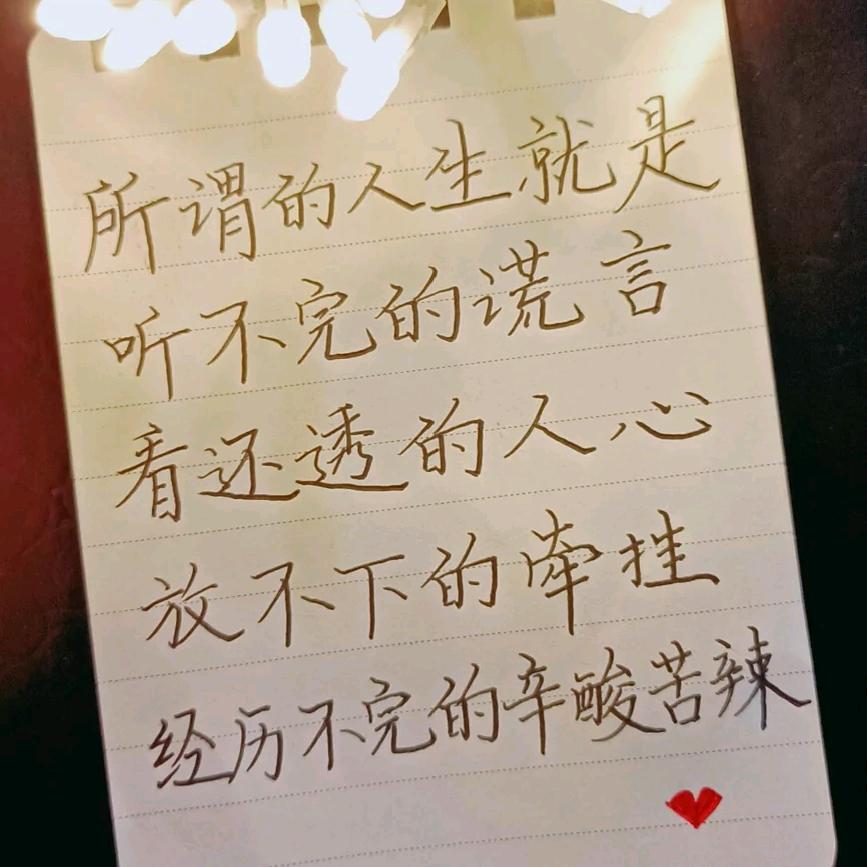 所谓的人生就是
听不完的谎言
看还透的人心
放不下的牵挂
经历不完的辛酸苦辣